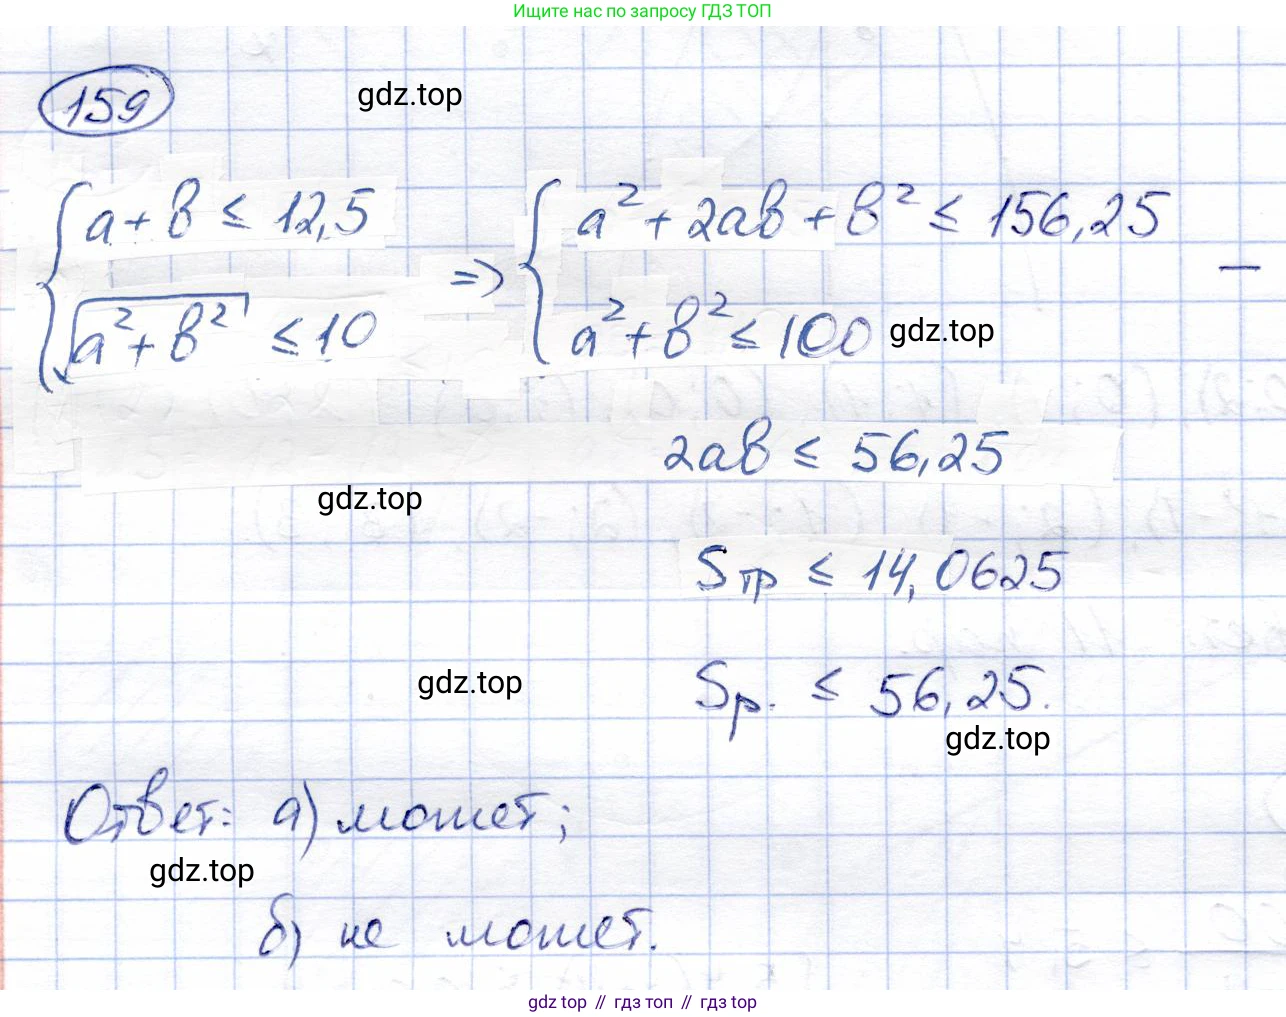 Ищите нас по запросу ГДЗ ТОП
159
gdz.top
{ a + b ≤ 12,5 => { a² + 2ab + b² ≤ 156,25 —
{ √(a² + b²) ≤ 10 { a² + b² ≤ 100 gdz.top
2ab ≤ 56,25
gdz.top
Sтр ≤ 14,0625
gdz.top
Sр. ≤ 56,25.
gdz.top
Ответ: а) может;
gdz.top
б) не может.
gdz top // гдз топ // гдз top